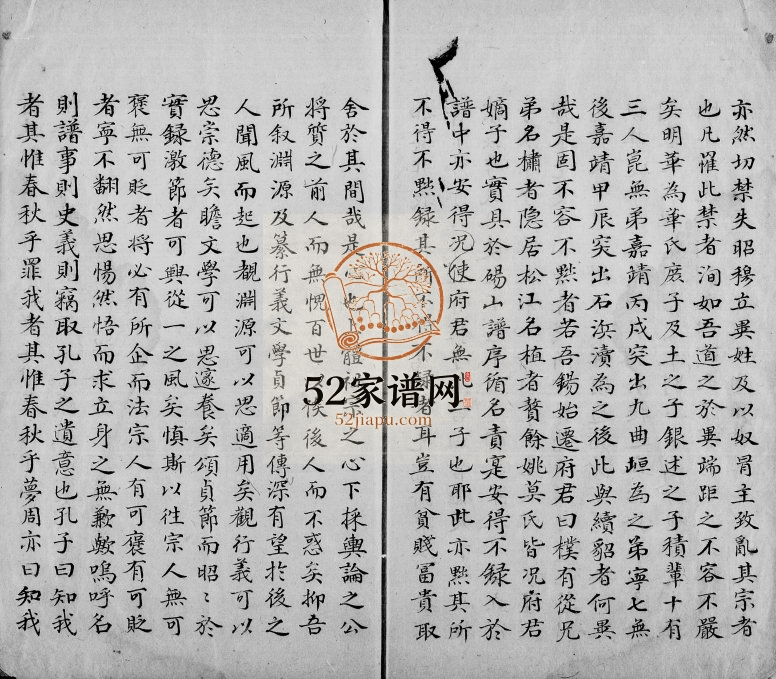 亦然切禁失昭穆立異姓及以奴冐主致亂其宗者
也凡罹此禁者洵如吾道之於異端距之不容不嚴
矣明華為華氏庶子及土之子銀述之子積輩十有
三人崑無弟嘉靖丙戌突出九曲岠為之弟寧七無
後嘉靖甲辰突出石浜瀆為之後此與續貂者何異
哉是固不容不黜者若吾鍚始遷府君曰樸有從兄
弟名橚者隐居松江名植者贅餘姚莫氏皆况府君
嫡子也實具於碭山譜序循名責寔安得不録入於
譜中亦安得况使府君無子也耶此亦黜其所
不得不黜録其所不得不録者耳豈有貧賤冨貴取
舍於其間哉是之心下採輿論之公
將質之前人而無愧百世俟後人而不惑矣抑吾
所叙淵源及纂行義文學貞節等傳深有望於後之
人聞風而起也觀淵源可以思適用矣觀行義可以
思崇德矣瞻文學可以思邃養矣頌貞節而昭〻於
實録激節者可興從一之風矣慎斯以徃宗人無可
褒無可貶者將必有所企而法宗人有可褒有可貶
者寧不翻然思惕然悟而求立身之無歉歟嗚呼名
則譜事則史義則竊取孔子之遺意也孔子曰知我
者其惟春秋乎罪我者其惟春秋乎夢周亦曰知我
52家谱网
52jiapu.com